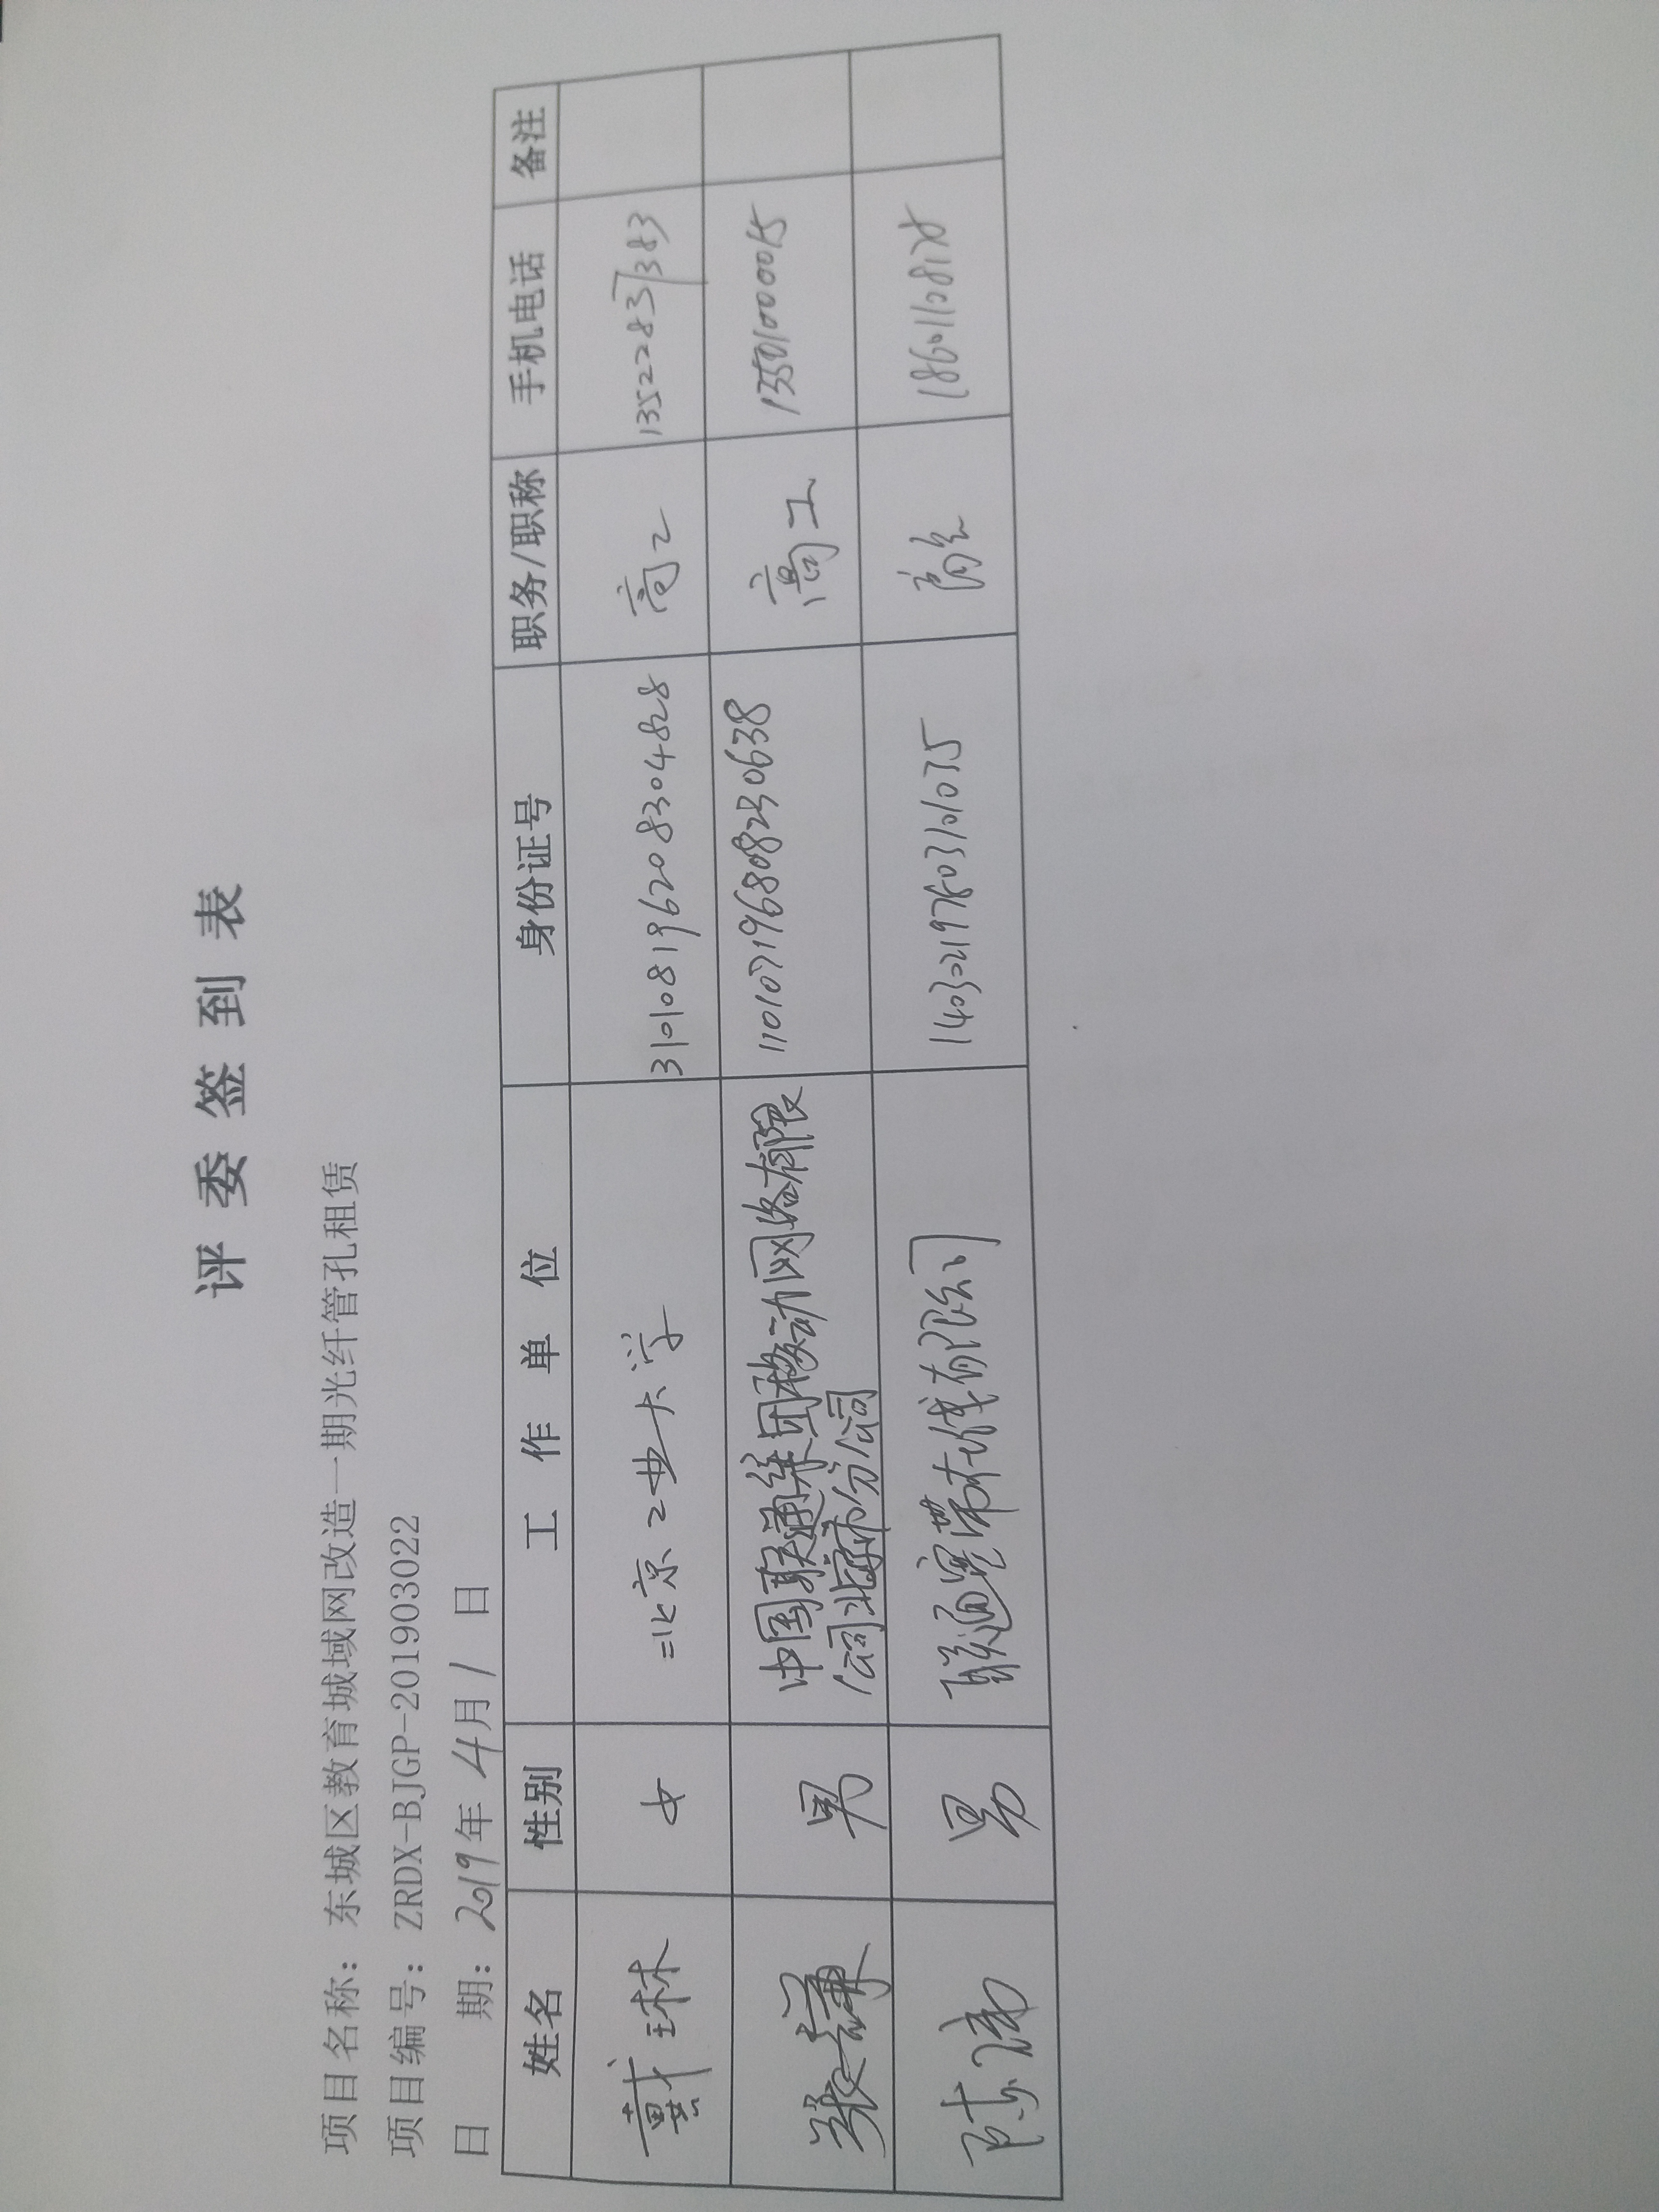 评委签到表
项目名称：东城区教育城域网改造一期光纤管孔租赁
项目编号：ZRDX-BJGP-201903022
日 期：2019年4月1日
姓名 性别 工作单位 身份证号 职务/职称 手机电话 备注
戴琳 女 北京工业大学 310108196208304828 高工 13522837383
张谦 男 中国联通集团移动网络有限 110107196808230638 高工 13501000015
公司北京市分公司
陈涛 男 联通宽带在线有限公司 高工 18601108128